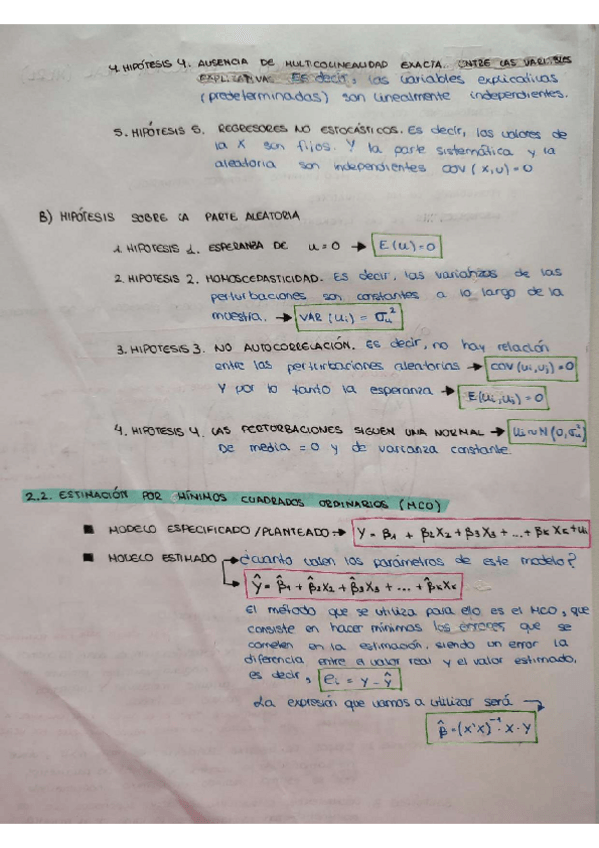 4. HIPÓTESIS 4. AUSENCIA DE MULTICOLINEALIDAD EXACTA. ENTRE LAS VARIABLES
EXPLICATIVAS. Es decir, las variables explicativas
(predeterminadas) son linealmente independientes.
5. HIPÓTESIS 5. REGRESORES NO ESTOCÁSTICOS. Es decir, los valores de
la X son fijos. Y la parte sistemática y la
aleatoria son independientes COV(X,U)=0
B) HIPÓTESIS SOBRE LA PARTE ALEATORIA
1. HIPÓTESIS 1. ESPERANZA DE u=0 → E(u)=0
2. HIPÓTESIS 2. HOMOSCEPASTICIDAD. Es decir, las varianzas de las
perturbaciones son constantes a lo largo de la
muestra. → VAR(Ui) = σu²
3. HIPOTESIS 3. NO AUTOCORRELACIÓN. Es decir, no hay relación
entre las perturbaciones aleatorias → COV(Ui,Uj)=0
Y por lo tanto la esperanza → E(Ui,Uj)=0
4. HIPÓTESIS 4. LAS PERTURBACIONES SIGUEN UNA NORMAL → Ui~N(0,σu²)
De media = 0 y de varianza constante.
2.2. ESTIMACIÓN POR MÍNIMOS CUADRADOS ORDINARIOS (MCO)
■ MODELO ESPECIFICADO/PLANTEADO → Y = β1 + β2X2 + β3X3 + ... + βKXK + ui
■ MODELO ESTIMADO → ¿cuanto valen los parámetros de este modelo?
→ Ŷ = β̂1 + β̂2X2 + β̂3X3 + ... + β̂KXK
El método que se utiliza para ello es el MCO, que
consiste en hacer mínimos los errores que se
cometen en la estimación, siendo un error la
diferencia entre el valor real y el valor estimado,
es decir, ei = Y - Ŷ
La expresión que vamos a utilizar será →
β̂ = (X'X)⁻¹ · X · Y